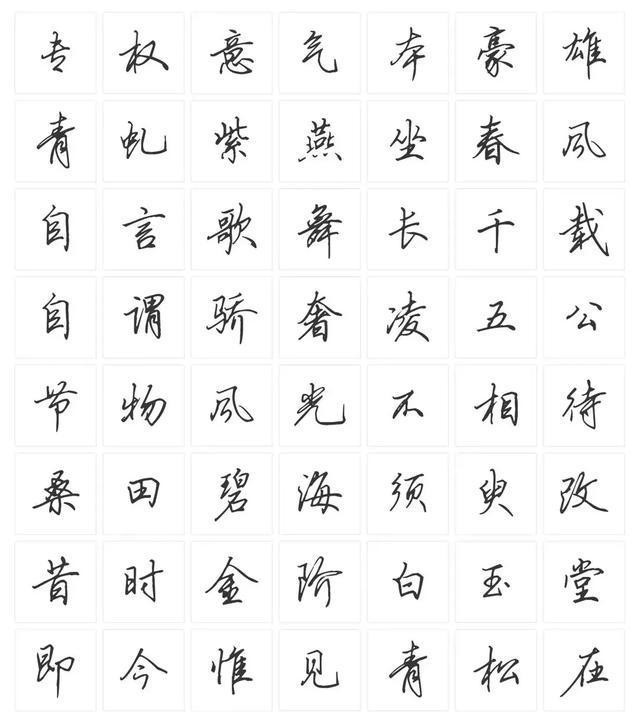 专权意气本豪雄
青虬紫燕坐春风
自言歌舞长千载
自谓骄奢凌五公
节物风光不相待
桑田碧海须臾改
昔时金阶白玉堂
即今惟见青松在